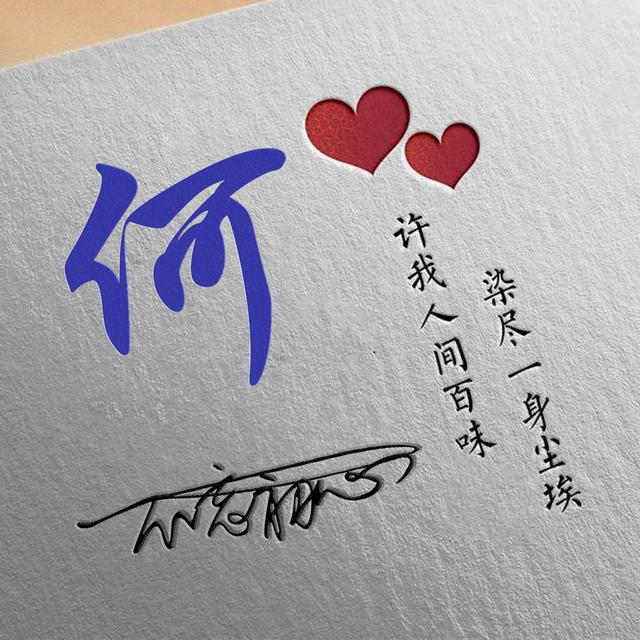 何
许我人间百味
染尽一身尘埃